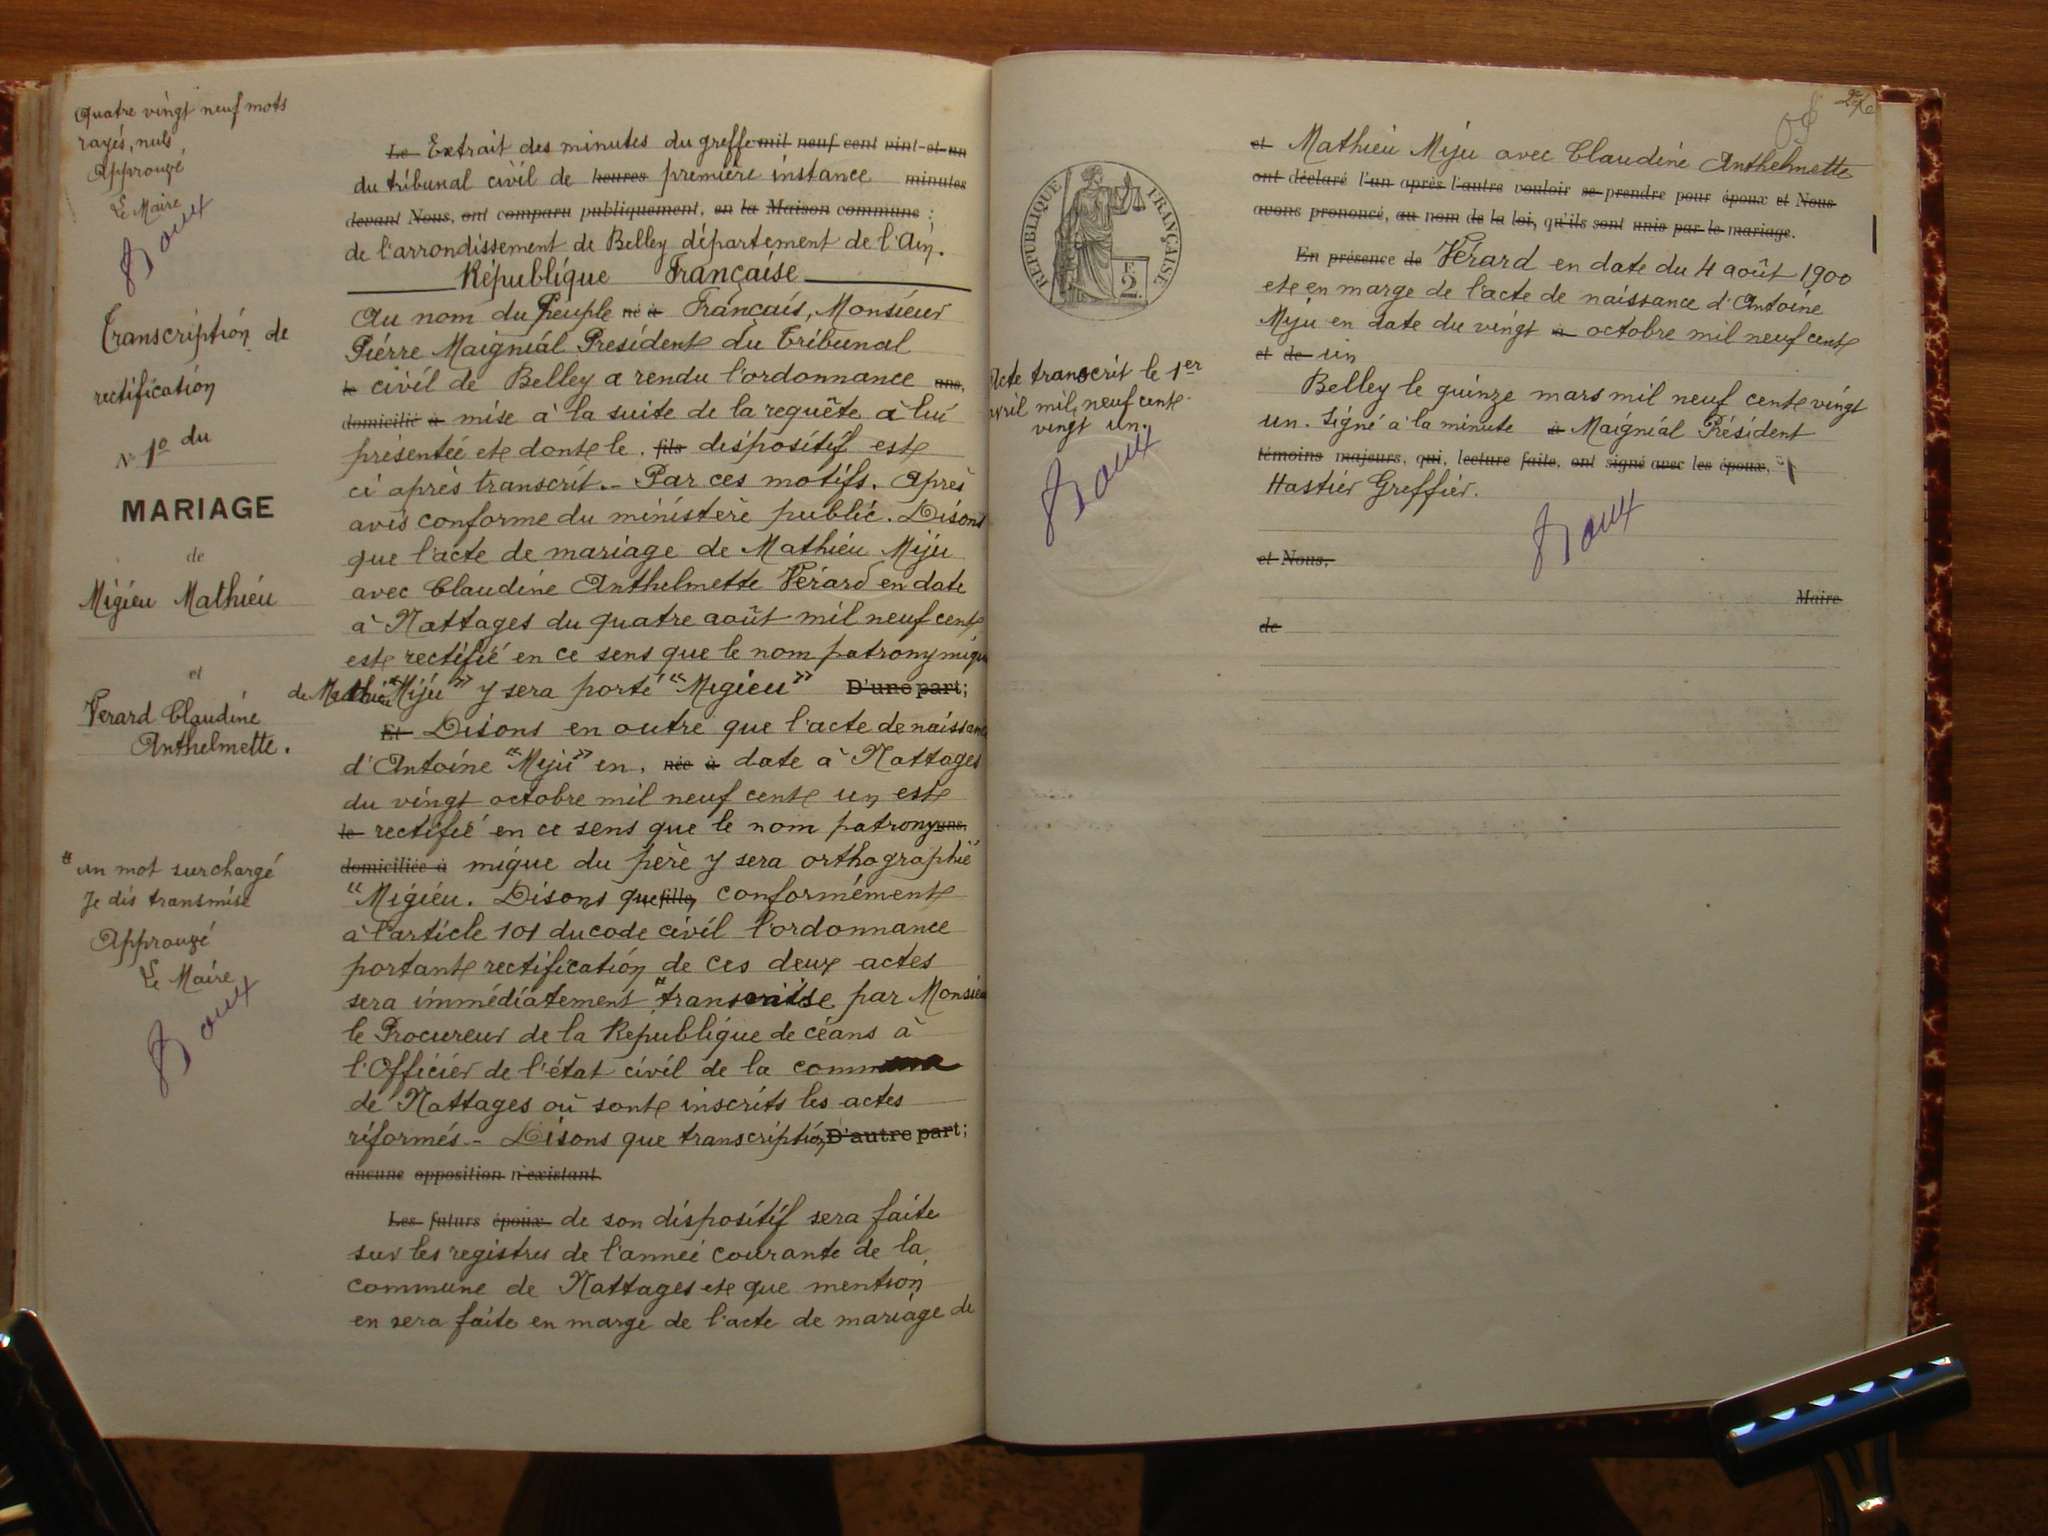 Quatre vingt neuf mots
rayés, nuls
Approuvé
Le Maire
Transcription de
rectification
N° 1° du
MARIAGE
de
Migieu Mathieu
et
Verard Claudine
Anthelmette.
" un mot surchargé
Je dis transmise
Approuvé
Le Maire
Le Extrait des minutes du greffe mil neuf cent vint-et-un
du tribunal civil de heures première instance minutes
devant Nous, ont comparu publiquement, en la Maison commune :
de l'arrondissement de Belley département de l'Ain.
République Française
Au nom du Peuple né à Français, Monsieur
Pierre Maignial Président du Tribunal
le civil de Belley a rendu l'ordonnance ans,
domicilié à mise à la suite de la requête à lui
présentée et dont le. fils dispositif est
ci après transcrit.- Par ces motifs. Après
avis conforme du ministère public. Disons
que l'acte de mariage de Mathieu Miju
avec Claudine Anthelmette Vérard en date
à Nattages du quatre août mil neuf cent
est rectifié en ce sens que le nom patronymique
de Mathieu "Miju" y sera porté "Migieu" D'une part;
Et Disons en outre que l'acte de naissance
d'Antoine "Miju" en, née à date à Nattages
du vingt octobre mil neuf cent un est
le rectifié en ce sens que le nom patrony ans,
domiciliée à mique du père y sera orthographié
"Migieu. Disons que fille, conformément
à l'article 101 du code civil l'ordonnance
portant rectification de ces deux actes
sera immédiatement "transmise par Monsieur
le Procureur de la République de céans à
l'Officier de l'état civil de la commune
de Nattages où sont inscrits les actes
réformés.- Disons que transcription D'autre part;
aucune opposition n'existant.
Les futurs époux de son dispositif sera faite
sur les registres de l'année courante de la
commune de Nattages et que mention
en sera faite en marge de l'acte de mariage de
RÉPUBLIQUE FRANÇAISE
2 F.
Acte transcrit le 1er
avril mil neuf cent
vingt un.
et Mathieu Miju avec Claudine Anthelmette
ont déclaré l'un après l'autre vouloir se prendre pour époux et Nous
avons prononcé, au nom de la loi, qu'ils sont unis par le mariage.
En présence de Vérard en date du 4 août 1900
et en marge de l'acte de naissance d'Antoine
Miju en date du vingt à octobre mil neuf cent
et de un
Belley le quinze mars mil neuf cent vingt
un. Signé à la minute à Maignial Président
témoins majeurs, qui, lecture faite, ont signé avec les époux,
Hastier Greffier.
et Nous,
Maire
de